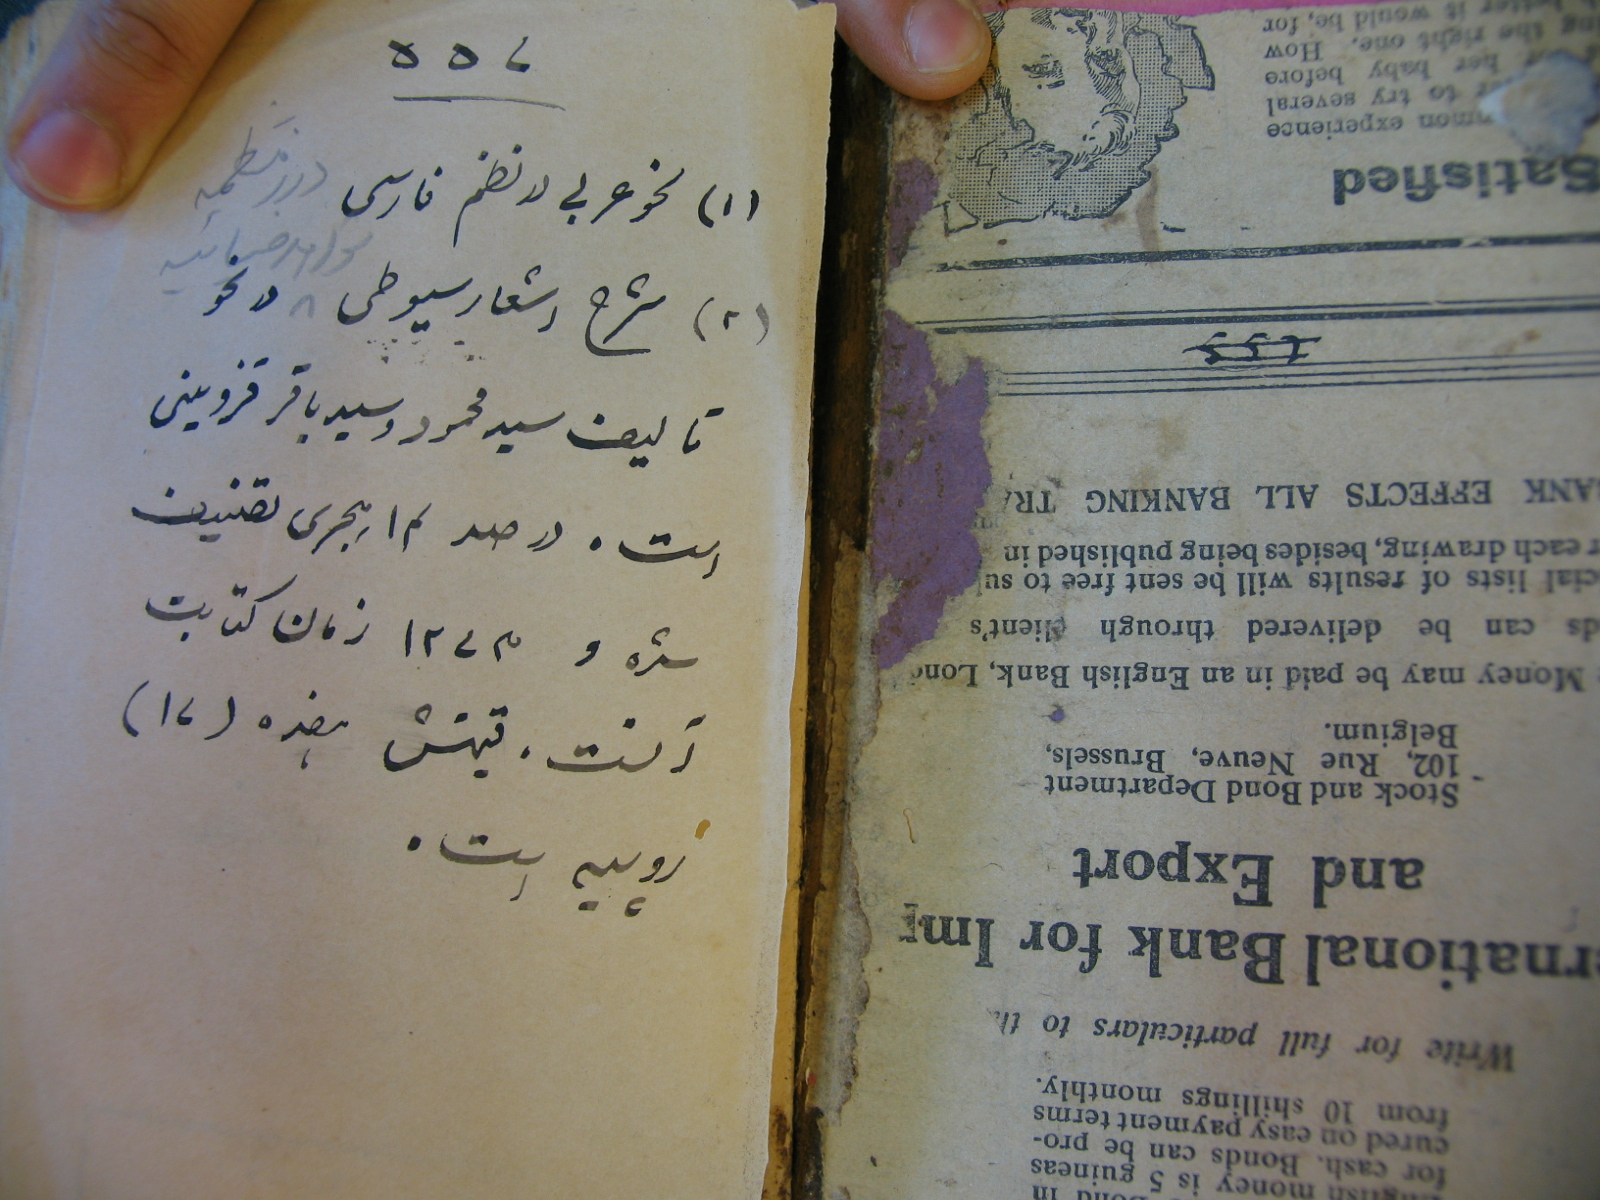 ۵۵۷
(۱) نحو عربی در نظم فارسی
(۲) شرح اشعار سیوطی در نحو
تالیف سید محمود و سید باقر قزوینی
است . در صد هجری تصنیف
شده و ۱۲۷۴ زمان کتابت
آنست . قیمتش هفده (۱۷)
روپیه است .
money is 5 guineas
for cash. Bonds can be pro-
cured on easy payment terms
from 10 shillings monthly.
Write for full particulars to th
ernational Bank for Imp
and Export
Stock and Bond Department
102, Rue Neuve, Brussels,
Belgium.
Money may be paid in an English Bank, Lon
ds can be delivered through client's
cial lists of results will be sent free to su
r each drawing, besides being published in
BANK EFFECTS ALL BANKING TRA
557
Satisfied
mmon experience
r to try several
her baby before
ng the right one. How
h better it would be, for,